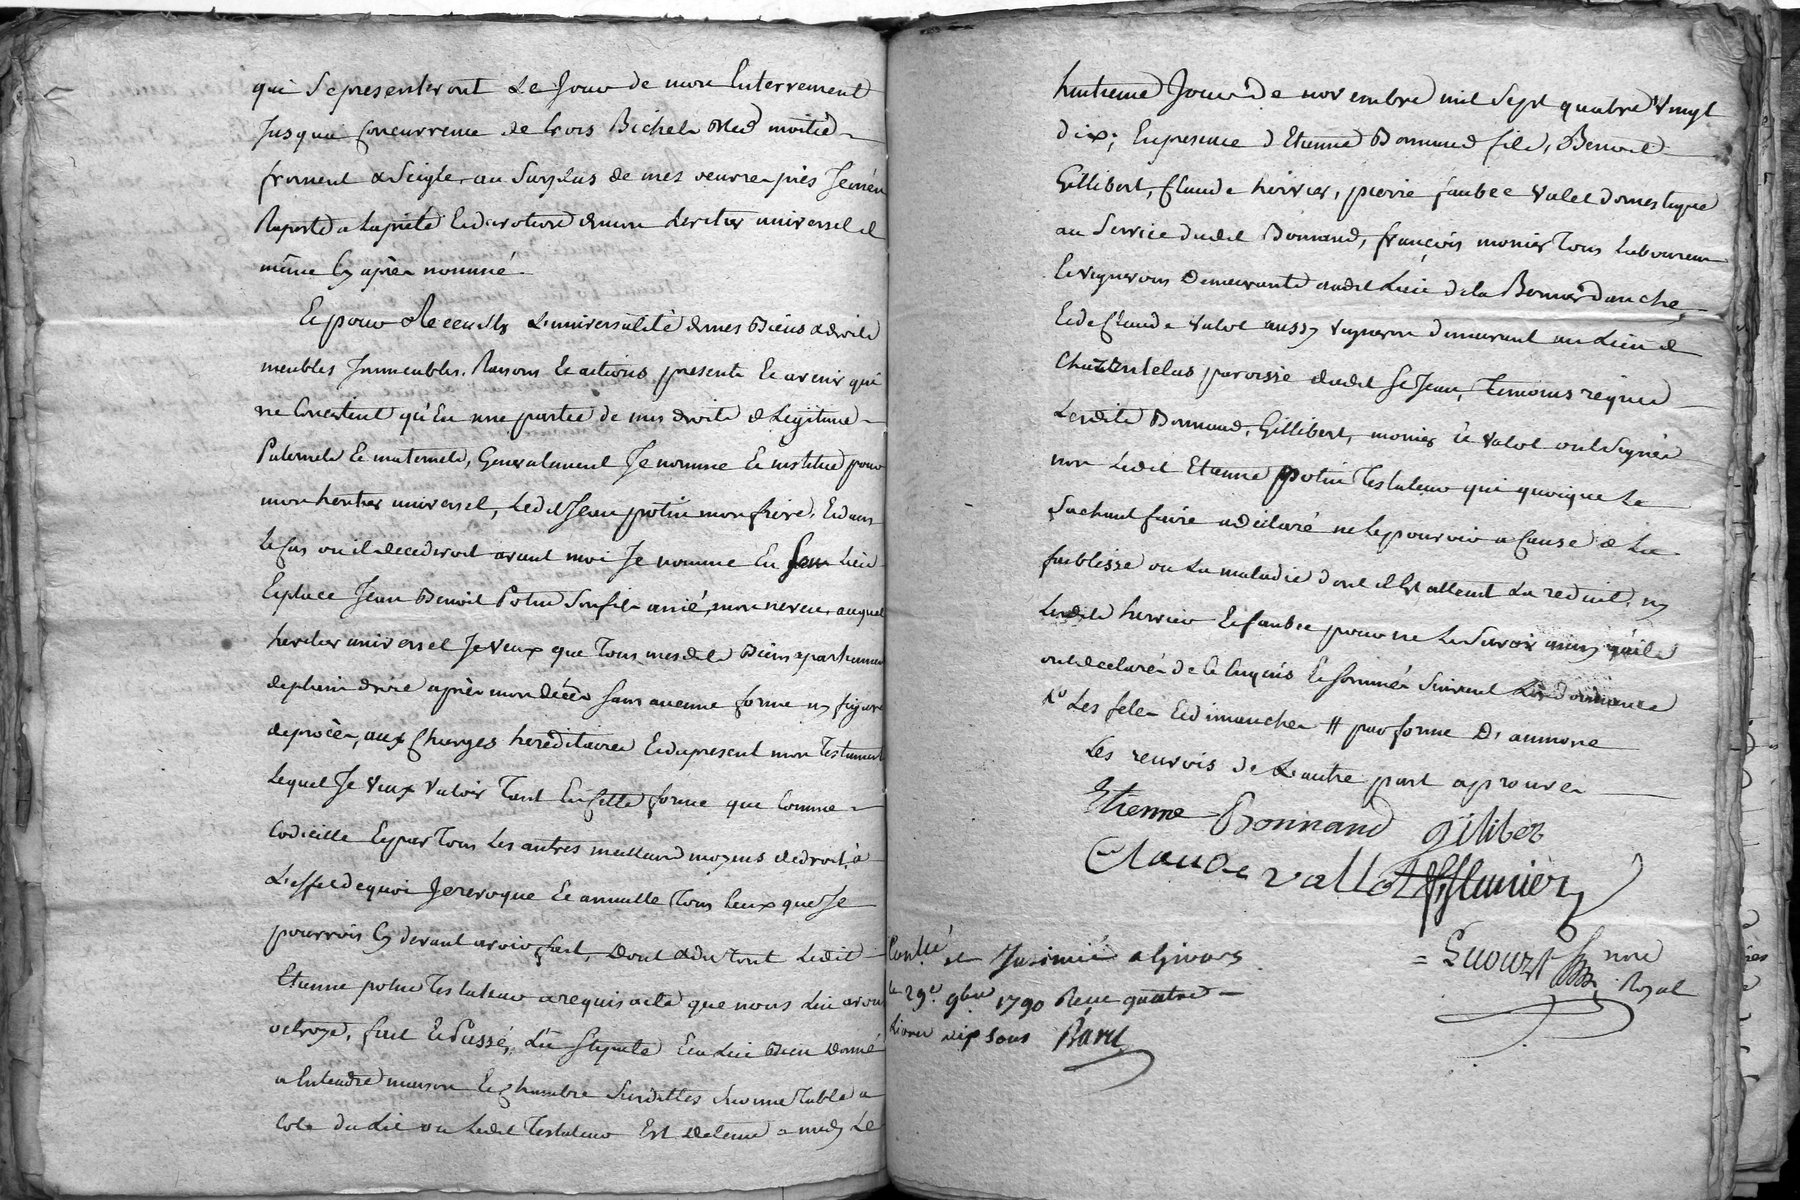 qui se presenteront Le Jour de mon Enterrement
Jusqua Concurrence de trois Bichets bled moitié
froment & Seigle, au Surplus de mes oeuvres pies Je m'en
Raporte a La pieté Et devotion de mon heritier universel
même Cy après nommé.
Et pour Recœuillir L'universalité de mes Biens & droits
meubles Immeubles, Raisons Et actions presents Et avenir qui
ne Consistent qu'En une partie de mes droits de Légitime
Paternels Et maternels, Generalement Je nomme Et institue pour
mon heritier universel, Ledit Jean potin mon frere, Et dans
Le Cas ou il decederoit avant moi Je nomme En son Lieu
Et place Jean Benoit Potin Son fils ainé, mon neveu, auquel
heritier universel Je veux que Tous mesdits Biens apartiennent
de plein droit après mon décès Sans aucune forme ny figure
de procès, aux Charges hereditaires Et du present mon Testament
Lequel Je veux valoir Tant En Cette forme que Comme
Codicille Et par Tous Les autres meilleurs moyens de droit, à
L'effet de quoi Je revoque Et annulle Tous Ceux que Je
pourrois Cy devant avoir fait, Dont & du tout Ledit
Etienne potin Testateur a requis acte que nous Lui avons
octroyé, fait Et Passé, Lu Stipulé Et a Lui Bien Donné
a Entendre maison Et Chambre Susdittes Sur une Table a
Coté du Lit ou Ledit Testateur Est detenu a midy Le
huitieme Jour de novembre mil Sept quatre Vingt
dix; En presence d'Etienne Bonnand fils, Benoit
Gillibert, Claude hervier, pierre faubec valet domestique
au Service dudit Bonnand, françois monier Tous Laboureurs
Et vignerons Demeurants audit Lieu de la Bernardanche,
Et de Claude valot aussy vigneron demeurant au Lieu de
Chazentelas paroisse dudit St Jean, Temoins requis
Lesdits Bonnand, Gillibert, monier Et valot ont Signé
non Ledit Etienne potin Testateur qui quoique Le
Sachant faire a déclaré ne Le pouvoir a Cause de La
faiblesse ou La maladie dont il Est atteint La reduit, ny
Lesdits hervier Et faubec pour ne Le Savoir ainsy qu'ils
ont declaré de Ce Enquis Et Sommés Suivant L'ordonnance
Les fetes Et dimanches # par forme D'aumone
Les renvois de L'autre part aprouvés
Etienne Bonnand giliber
Claude vallot f Munier
Conllé et Insinué a Givors
le 29e 9bre 1790 Reçu quatre
Livres dix sous
nore
Royal